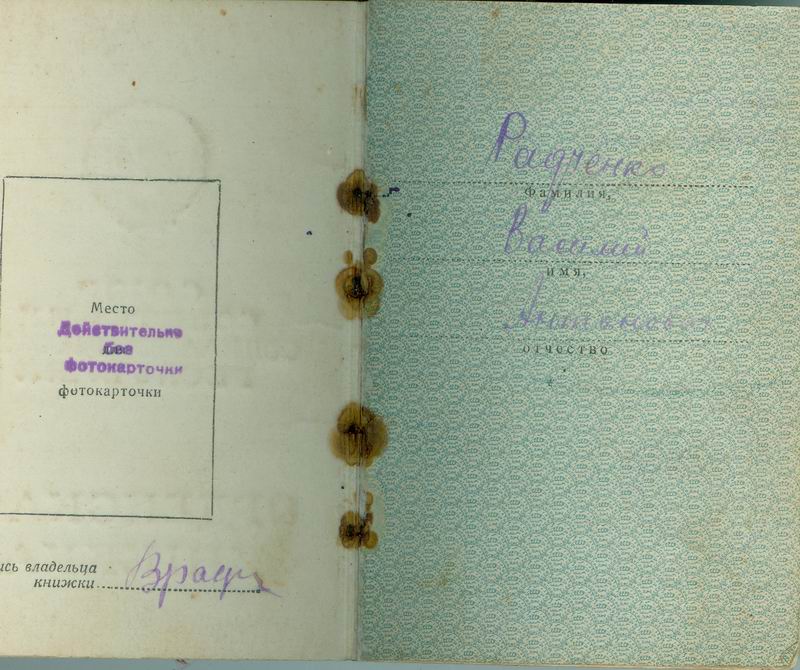 Место
Действительно
без
для
фотокарточки
фотокарточки
ись владельца
книжки
Врадч
Радченко
фамилия,
Василий
имя,
Антонович
отчество